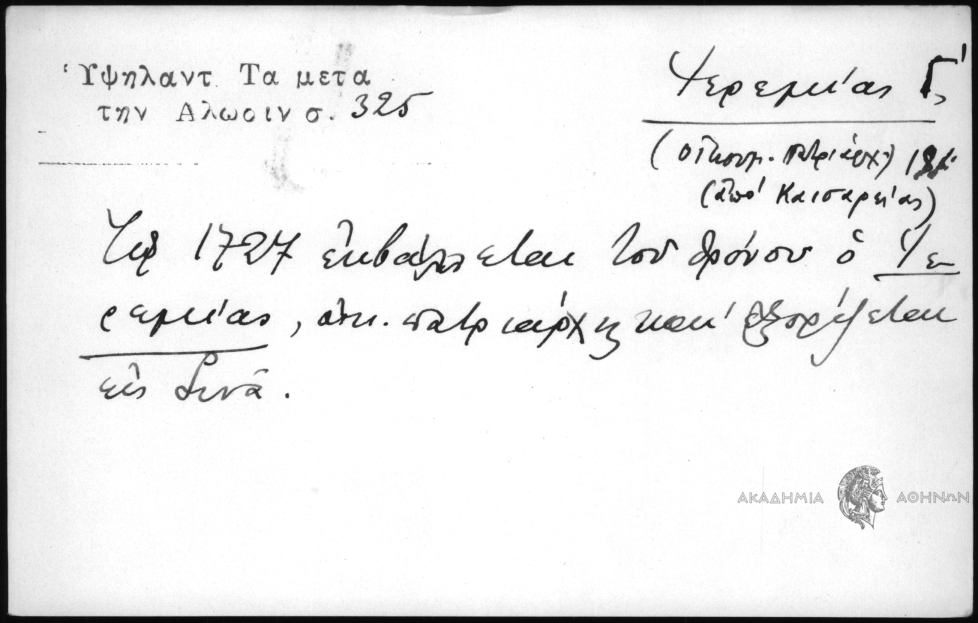 Ὑψηλαντ Τα μετα
την Αλωσιν σ. 325
Ἱερεμίας Γ΄
(οἰκουμ. πατριάρχ)
(ἀπό Καισαρείας)
Τῷ 1727 ἐκβάλλεται τοῦ θρόνου ὁ Ἱε
ρεμίας, οἰκ. πατριάρχης καί ἐξορίζεται
εἰς Σινᾶ.
ΑΚΑΔΗΜΙΑ ΑΘΗΝΩΝ